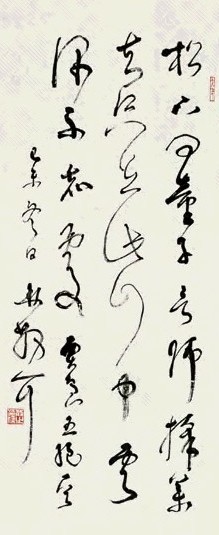 松下問童子言師採藥
去只在此山中雲
深不知處 賈島五絕
己未冬日 林散耳